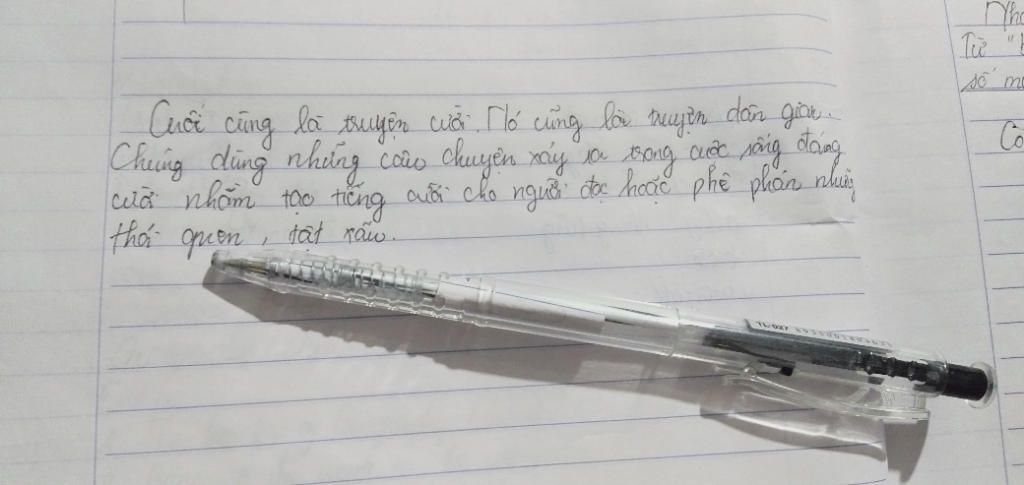 Cuối cùng là truyện cười. Nó cũng là truyện dân gian.
Chúng dùng những câu chuyện xảy ra trong cuộc sống đáng
cười nhằm tạo tiếng cười cho người đọc hoặc phê phán những
thói quen, tật xấu.
TL-027
Từ "
số